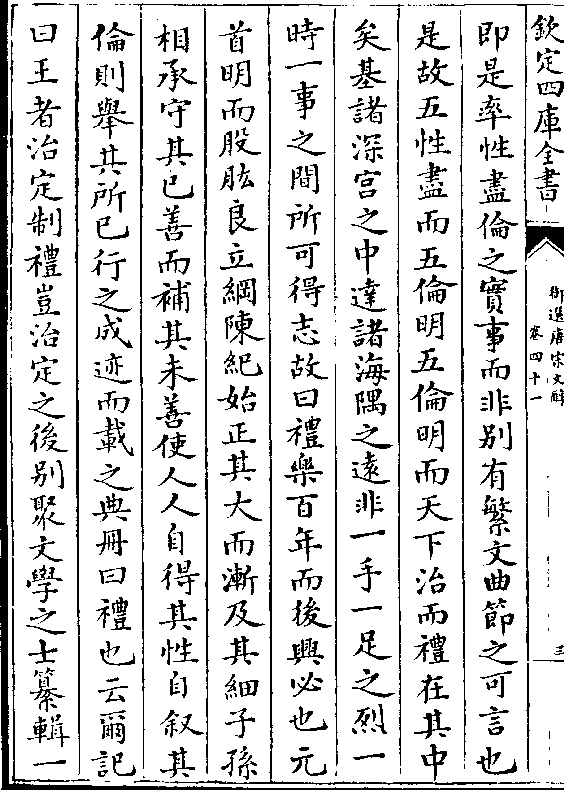 欽定四庫全書
御選唐宋文醇
卷四十一
三
即是率性盡倫之實事而非别有繁文曲節之可言也
是故五性盡而五倫明五倫明而天下治而禮在其中
矣基諸深宫之中達諸海隅之遠非一手一足之烈一
時一事之間所可得志故曰禮樂百年而後興必也元
首明而股肱良立綱陳紀始正其大而漸及其細子孫
相承守其已善而補其未善使人人自得其性自叙其
倫則舉其所已行之成迹而載之典冊曰禮也云爾記
曰王者治定制禮豈治定之後别聚文學之士纂輯一